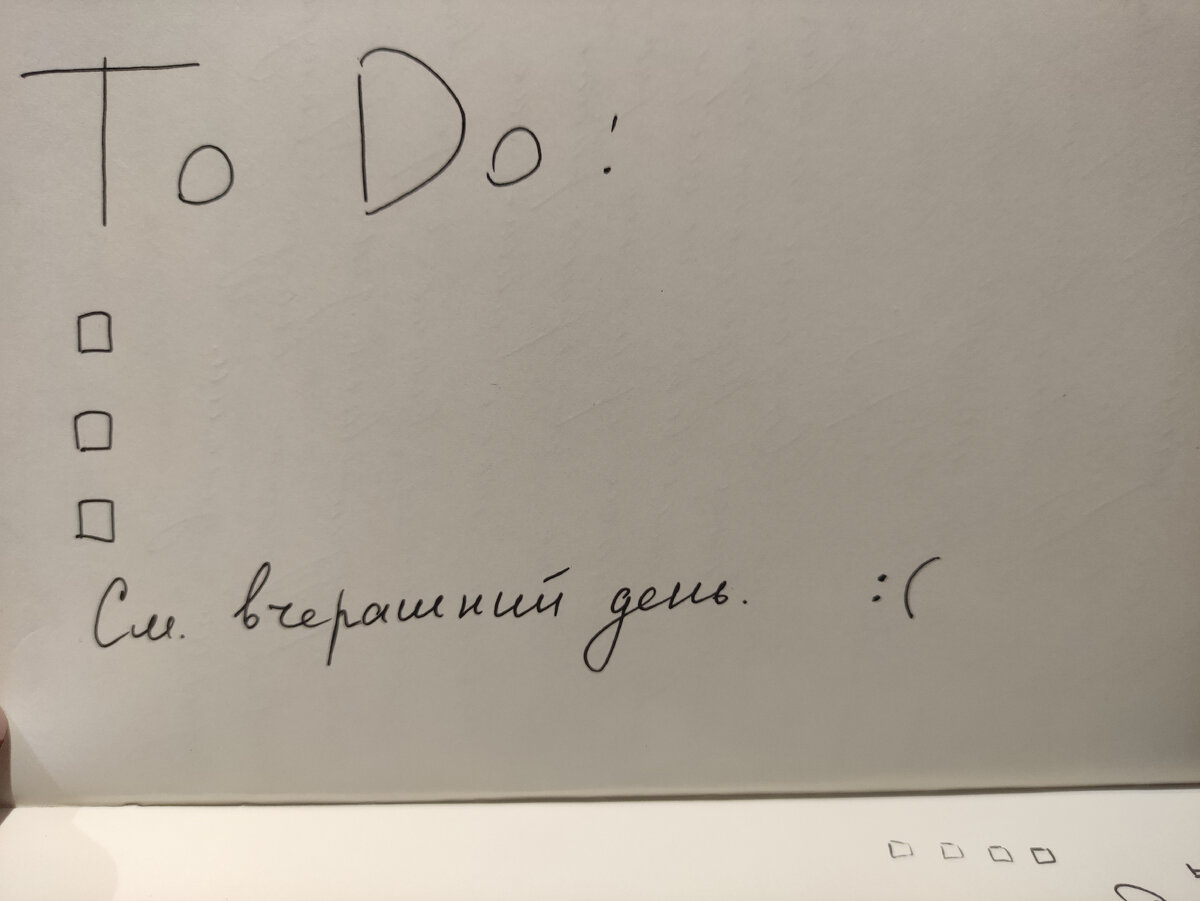 To Do:
□
□
□
См. вчерашний день. :(